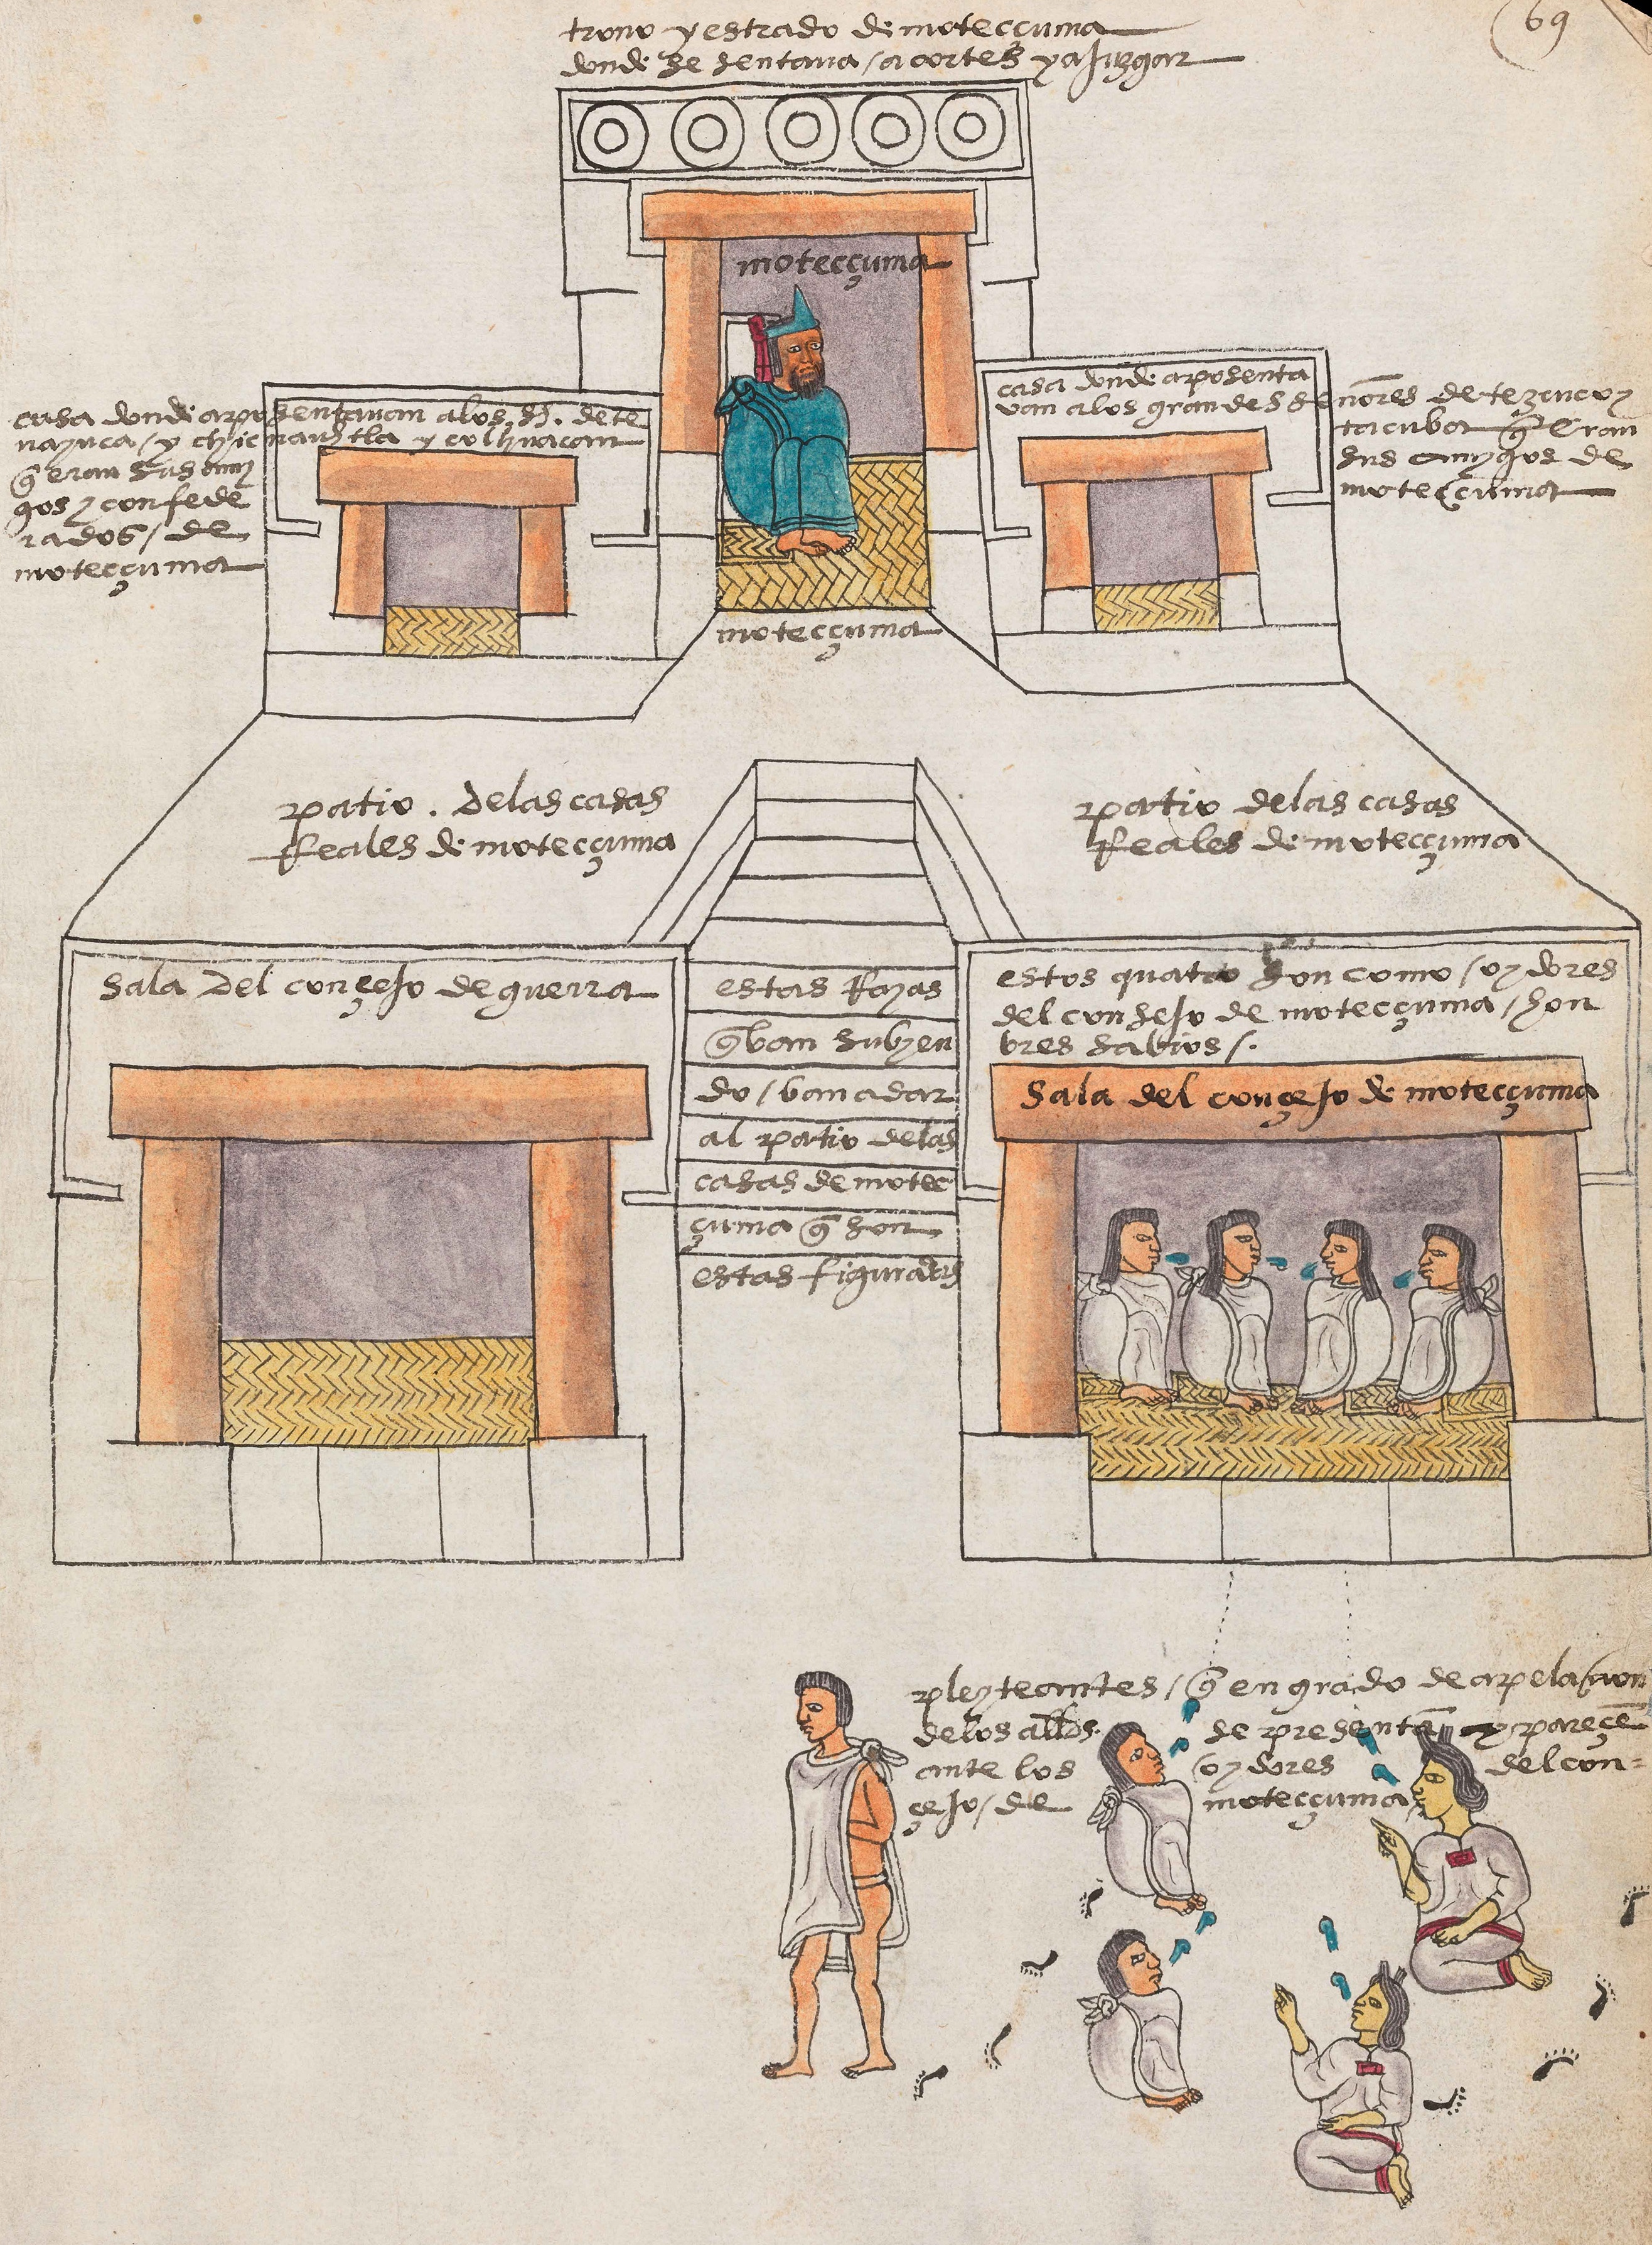 69
trono y estrado de motecçuma
donde se sentava / a cortes y a juzgar
motecçuma
casa donde aposentavan a los S.es de te
nayuca / y chicnauhtla y colhuacan
q̄ eran sus ami
gos y confede
rados / de
motecçuma
casa donde aposenta
van a los grandes señores de tezcuco y
tacuba q̄ eran
sus amygos de
motecçuma
motecçuma
patio . de las casas
Reales de motecçuma
patio de las casas
Reales de motecçuma
sala del conçejo de guerra
estas Rayas
q̄ ban subien
do / ban a dar
al patio de las
casas de motec
çuma q̄ son
estas figuradas
estos quatro son como / oydores
del consejo de motecçuma / hon
bres sabios /.
sala del conçejo de motecçuma
pleyteantes / q̄ en grado de apelaçion
de los alldes. se presentā y pareçē
ante los oydores del con=
çejo / de motecçuma